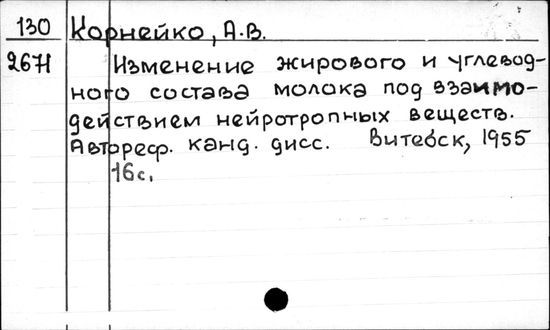 130 Корнейко, А.В.
2671 Изменение жирового и углевод-
ного состава молока под взаимо-
действием нейротропных веществ.
Автореф. канд. дисс. Витебск, 1955
16с.